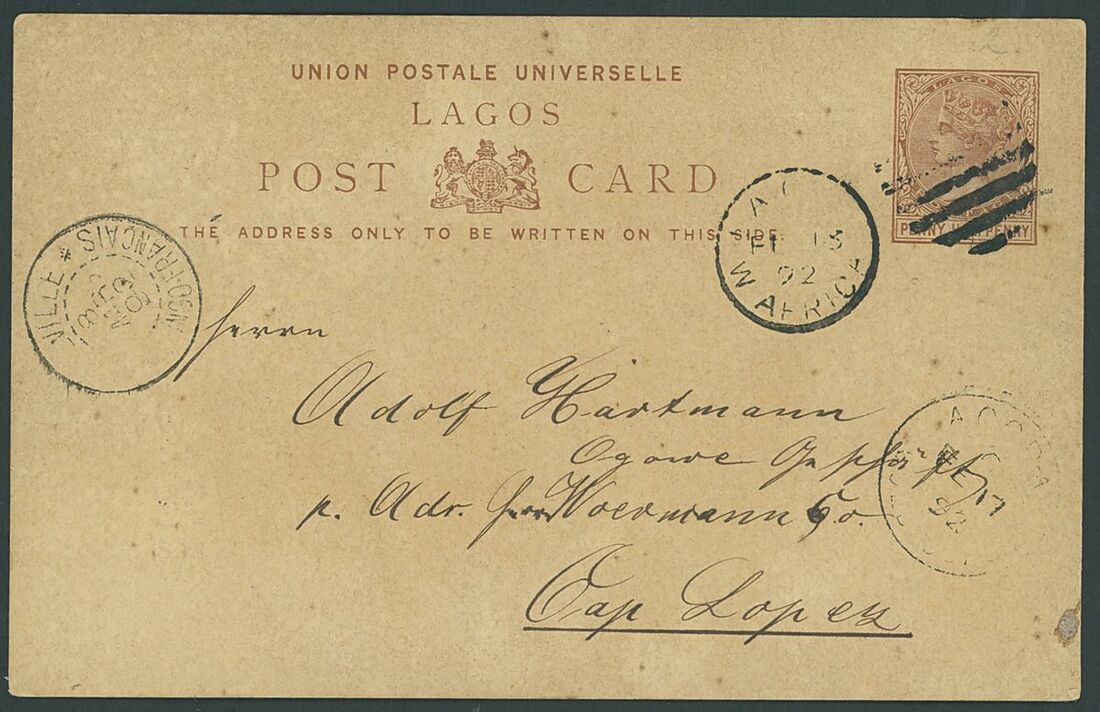 UNION POSTALE UNIVERSELLE
LAGOS
POST CARD
THE ADDRESS ONLY TO BE WRITTEN ON THIS SIDE.
LAGOS
PENNY HALFPENNY
13
92
W AFRICA
VILLE * FRANCAIS
Herrn
Adolf Hartmann
Ogowe Geschäft
p. Adr. Herrn Woermann & Co.
Cap Lopez
ACCRA
17
92